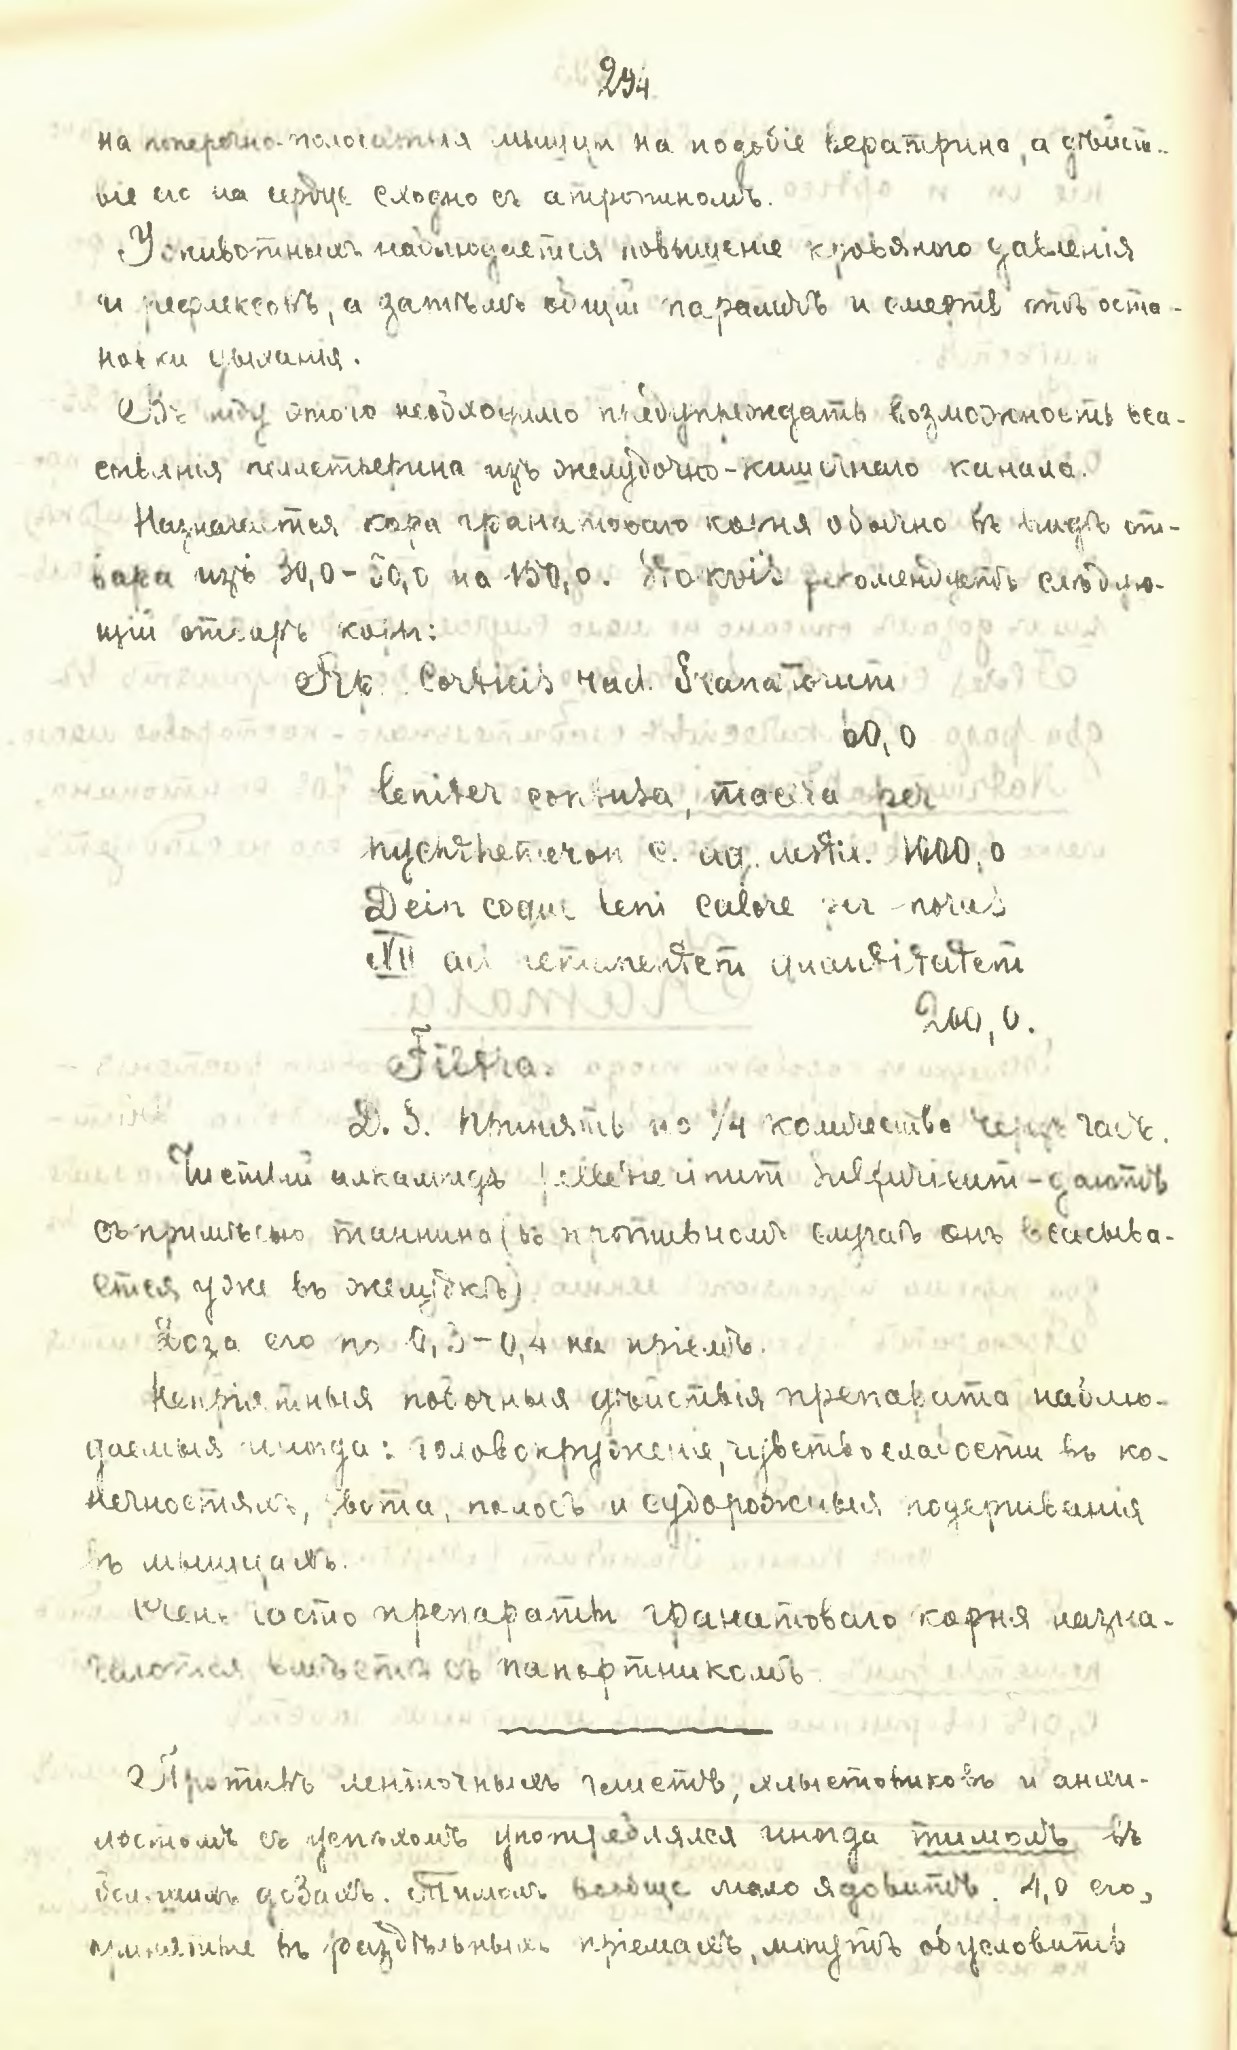 294
на поперечно-полосатыя мышцы на подобіе вератрина, а дѣйст-
віе его на сердце сходно съ атропиномъ.
У животныхъ наблюдается повышеніе кровяного давленія
и рефлексовъ, а затѣмъ общій параличъ и смерть отъ оста-
новки дыханія.
Въ виду этого необходимо предупреждать возможность вса-
сыванія пеллетьерина изъ желудочно-кишечнаго канала.
Назначается кора гранатоваго корня обычно въ видѣ от-
вара изъ 30,0-50,0 на 150,0. Stokvis рекомендуетъ слѣдую-
щій отваръ коры:
Rp. Corticis rad. Granatorum
60,0
leniter contusa, macera per
nychthemeron c. aq. destil. 1000,0
Dein coque leni calore per horas
XII ad remanentem quantitatem
200,0.
Filtra.
D. S. Принять по 1/4 количества черезъ часъ.
Чистый алкалоидъ pelletierinum sulfuricum-даютъ
съ примѣсью таннина (въ противномъ случаѣ онъ всасыва-
ется уже въ желудкѣ)
Доза его по 0,3-0,4 на пріемъ.
Непріятныя побочныя дѣйствія препарата наблю-
даемыя иногда: головокруженіе, чувство слабости въ ко-
нечностяхъ, рвота, поносъ и судорожныя подергиванія
въ мышцахъ.
Очень часто препараты гранатоваго корня назна-
чаются вмѣстѣ съ папортникомъ.
Противъ ленточныхъ глистъ, хлыстовиковъ и анки-
лостомъ съ успѣхомъ употреблялся иногда тимолъ въ
большихъ дозахъ. Тимолъ вообще мало ядовитъ. 4,0 его,
принятые въ раздѣльныхъ пріемахъ, могутъ обусловить